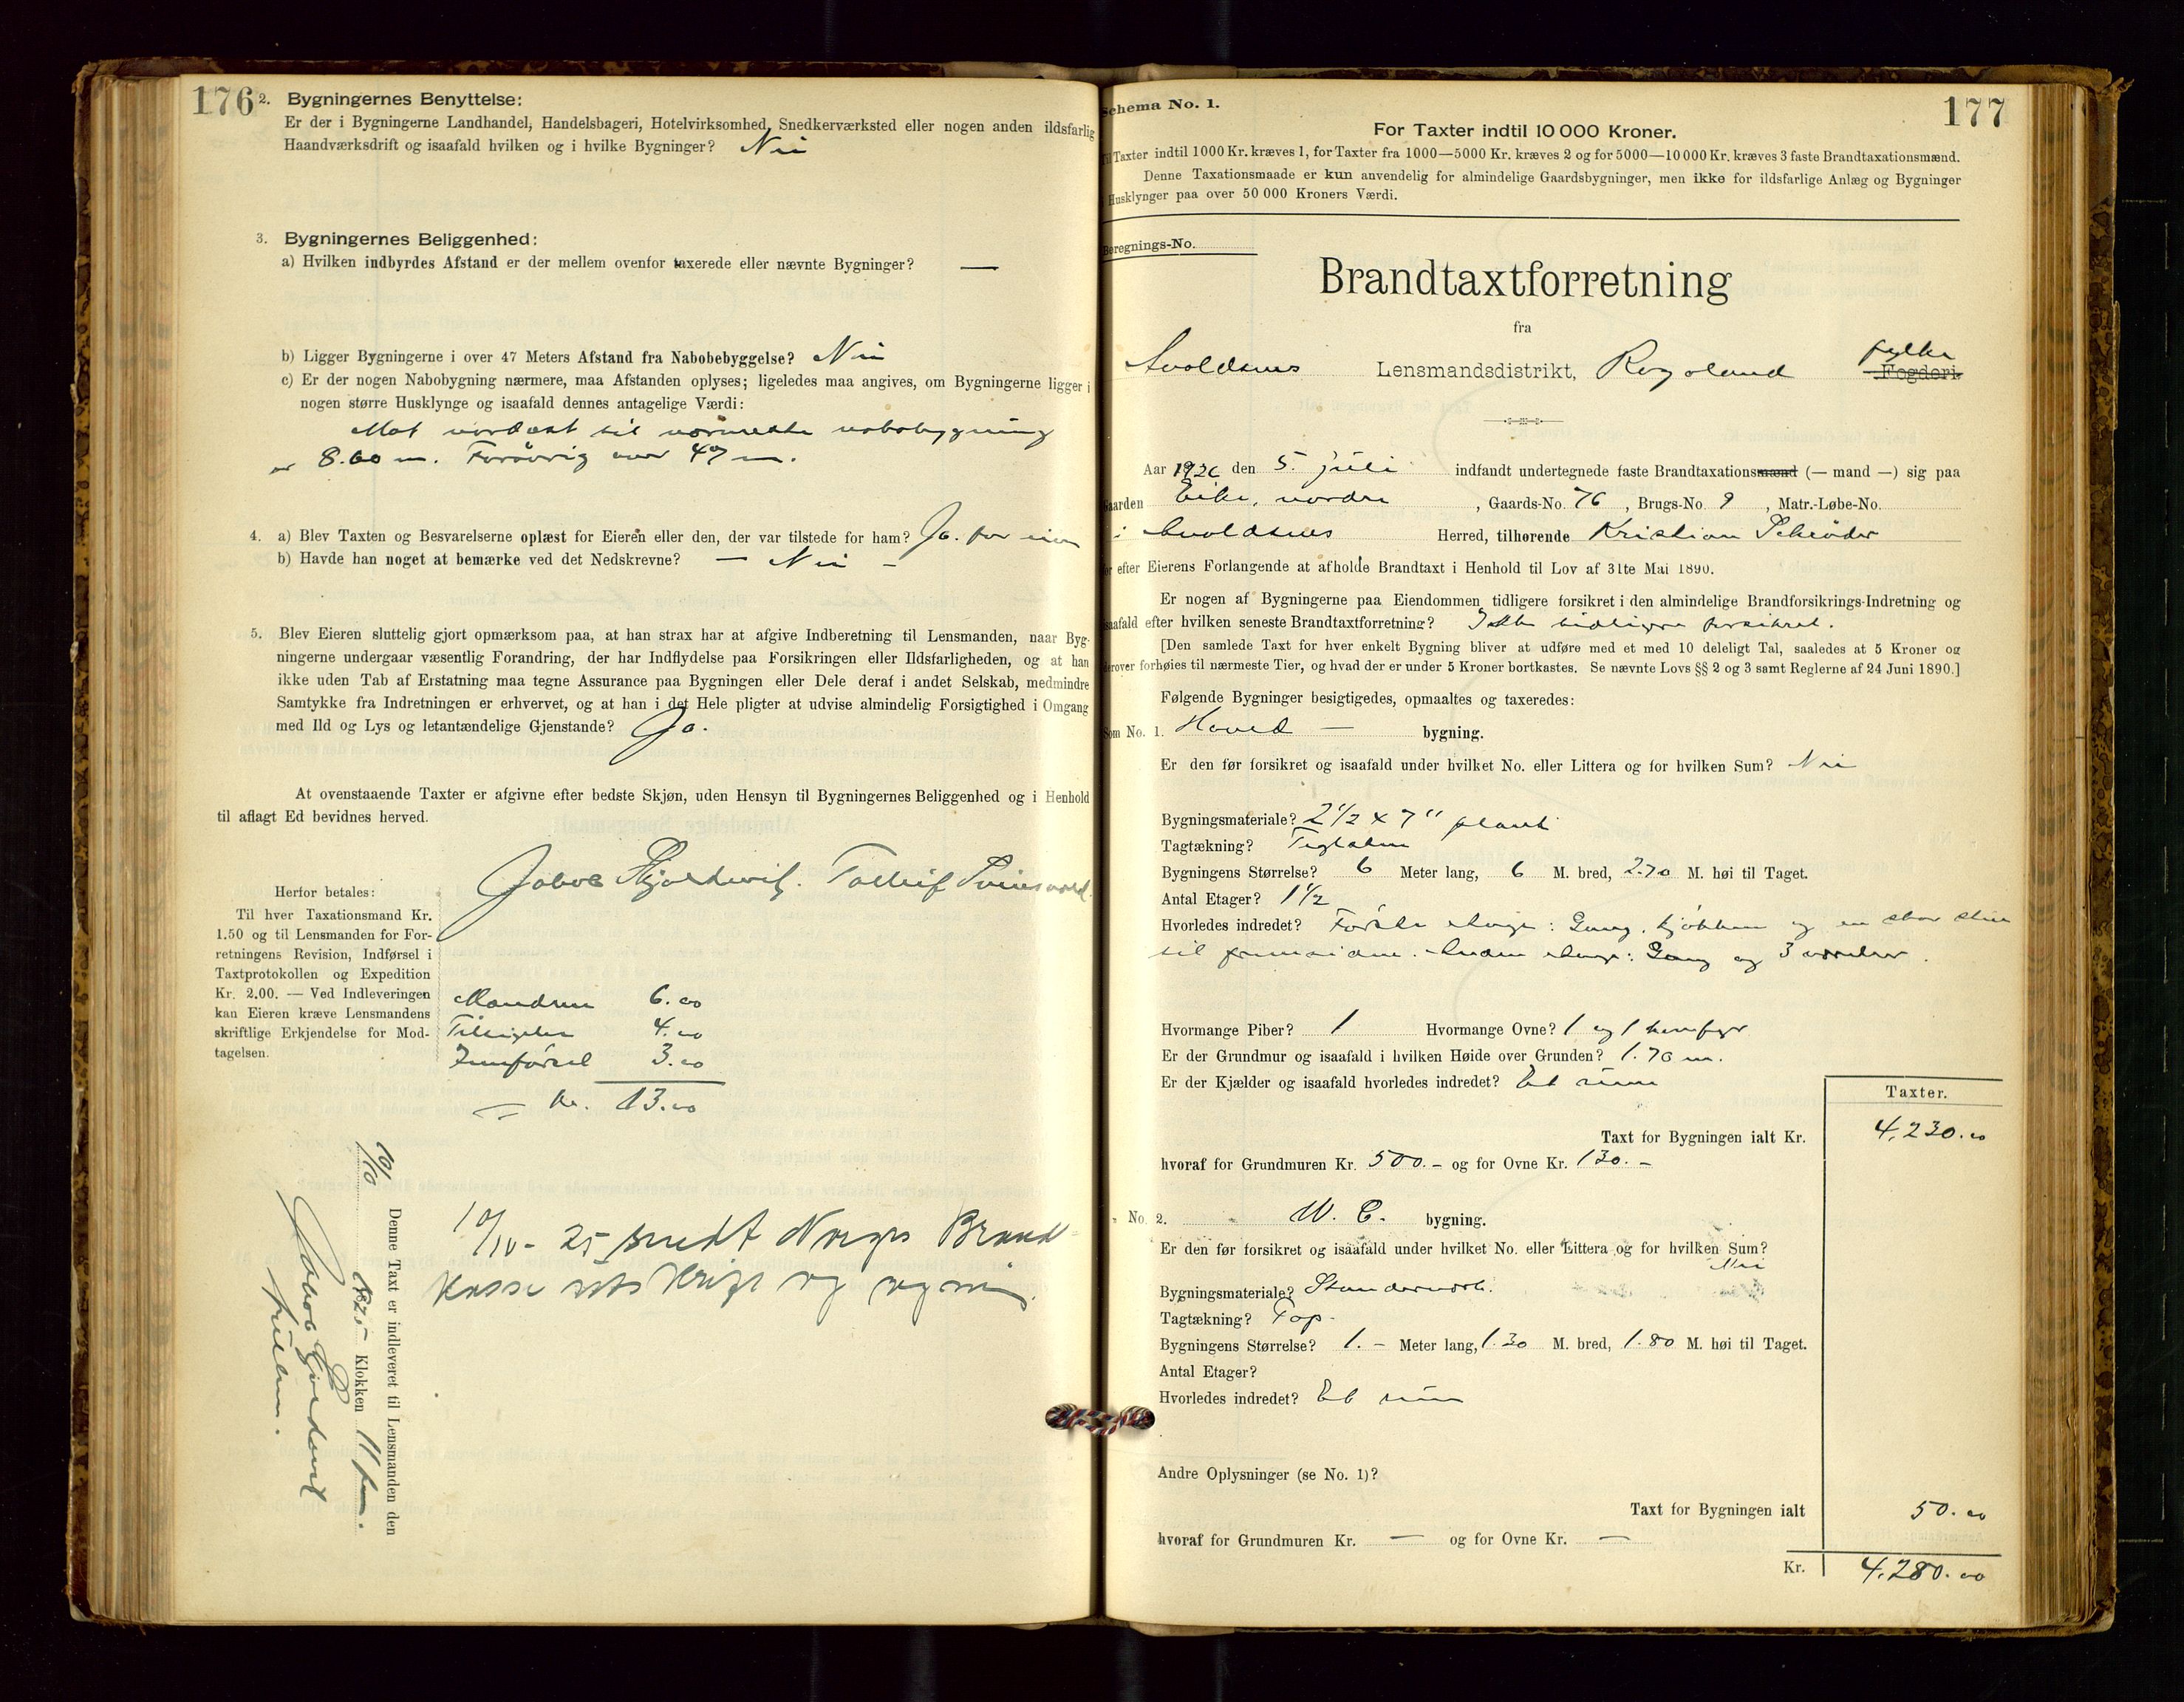 176
2. Bygningernes Benyttelse:
Er der i Bygningerne Landhandel, Handelsbageri, Hotelvirksomhed, Snedkerværksted eller nogen anden ildsfarlig
Haandværksdrift og isaafald hvilken og i hvilke Bygninger? Nei
3. Bygningernes Beliggenhed:
a) Hvilken indbyrdes Afstand er der mellem ovenfor taxerede eller nævnte Bygninger? —
b) Ligger Bygningerne i over 47 Meters Afstand fra Nabobebyggelse? Nei
c) Er der nogen Nabobygning nærmere, maa Afstanden oplyses; ligeledes maa angives, om Bygningerne ligger i
nogen større Husklynge og isaafald dennes antagelige Værdi:
Mot nordost til nærmeste nabobygning
er 8.60 m. Forøvrig over 47 m.
4. a) Blev Taxten og Besvarelserne oplæst for Eieren eller den, der var tilstede for ham? Ja. for eier
b) Havde han noget at bemærke ved det Nedskrevne? — Nei —
5. Blev Eieren sluttelig gjort opmærksom paa, at han strax har at afgive Indberetning til Lensmanden, naar Byg-
ningerne undergaar væsentlig Forandring, der har Indflydelse paa Forsikringen eller Ildsfarligheden, og at han
ikke uden Tab af Erstatning maa tegne Assurance paa Bygningen eller Dele deraf i andet Selskab, medmindre
Samtykke fra Indretningen er erhvervet, og at han i det Hele pligter at udvise almindelig Forsigtighed i Omgang
med Ild og Lys og letantændelige Gjenstande? Ja.
At ovenstaaende Taxter er afgivne efter bedste Skjøn, uden Hensyn til Bygningernes Beliggenhed og i Henhold
til aflagt Ed bevidnes herved.
Jakob
Herfor betales:
Til hver Taxationsmand Kr.
1.50 og til Lensmanden for For-
retningens Revision, Indførsel i
Taxtprotokollen og Expedition
Kr. 2.00. — Ved Indleveringen
kan Eieren kræve Lensmandens
skriftlige Erkjendelse for Mod-
tagelsen.
Mændene 6.00
4.00
Innførsel 3.00
Kr. 13.00
Denne Taxt er indleveret til Lensmanden den
Klokken 11 fm.
sendt Norges Brand-
kasse utskrift og
177
Schema No. 1.
For Taxter indtil 10 000 Kroner.
Til Taxter indtil 1000 Kr. kræves 1, for Taxter fra 1000—5000 Kr. kræves 2 og for 5000—10 000 Kr. kræves 3 faste Brandtaxationsmænd.
Denne Taxationsmaade er kun anvendelig for almindelige Gaardsbygninger, men ikke for ildsfarlige Anlæg og Bygninger
i Husklynger paa over 50 000 Kroners Værdi.
Beregnings-No.
Brandtaxtforretning
fra
Avaldsnes Lensmandsdistrikt, Rogaland fylke Fogderi.
Aar 1926 den 5. juli indfandt undertegnede faste Brandtaxationsmænd (— mand —) sig paa
Gaarden Eike, nordre, Gaards-No. 76, Brugs-No. 9, Matr.-Løbe-No.
i Avaldsnes Herred, tilhørende Kristian Schrøder
for efter Eierens Forlangende at afholde Brandtaxt i Henhold til Lov af 31te Mai 1890.
Er nogen af Bygningerne paa Eiendommen tidligere forsikret i den almindelige Brandforsikrings-Indretning og
isaafald efter hvilken seneste Brandtaxtforretning? Ikke tidligere forsikret.
[Den samlede Taxt for hver enkelt Bygning bliver at udføre med et med 10 deleligt Tal, saaledes at 5 Kroner og
derover forhøies til nærmeste Tier, og hvad der er under 5 Kroner bortkastes. Se nævnte Lovs §§ 2 og 3 samt Reglerne af 24 Juni 1890.]
Følgende Bygninger besigtigedes, opmaaltes og taxeredes:
Som No. 1. Hoved — bygning.
Er den før forsikret og isaafald under hvilket No. eller Littera og for hvilken Sum? Nei
Bygningsmateriale? 2 1/2 x 7" plank
Tagtækning? Teglsten
Bygningens Størrelse? 6 Meter lang, 6 M. bred, 2.70 M. høi til Taget.
Antal Etager? 1 1/2
Hvorledes indredet? Første etage: Gang, kjøkken og en stor stue
til grunnsiden. Anden etage: Gang og 3 værelser.
Hvormange Piber? 1 Hvormange Ovne? 1 og 1 komfyr
Er der Grundmur og isaafald i hvilken Høide over Grunden? 1.70 m.
Er der Kjælder og isaafald hvorledes indredet? Et rum
Taxter.
Taxt for Bygningen ialt Kr. 4,230.00
hvoraf for Grundmuren Kr. 500.— og for Ovne Kr. 130.—
" No. 2. W. C. bygning.
Er den før forsikret og isaafald under hvilket No. eller Littera og for hvilken Sum?
Nei
Bygningsmateriale? Standerverk.
Tagtækning? Pap.
Bygningens Størrelse? 1.— Meter lang, 1.30 M. bred, 1.80 M. høi til Taget.
Antal Etager?
Hvorledes indredet? Et rum
Andre Oplysninger (se No. 1)?
Taxt for Bygningen ialt 50.00
hvoraf for Grundmuren Kr. — og for Ovne Kr. —
Kr. 4,280.00